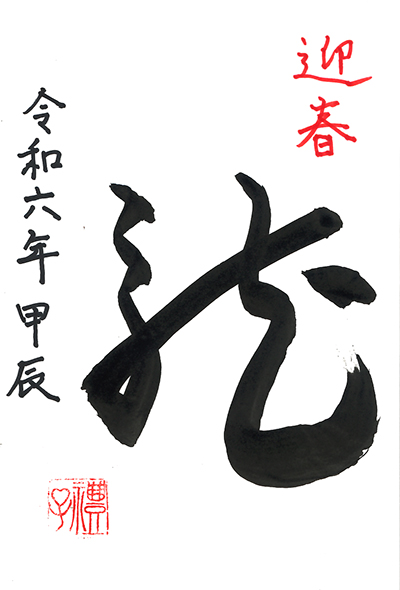 迎春
龍
令和六年甲辰
禮子